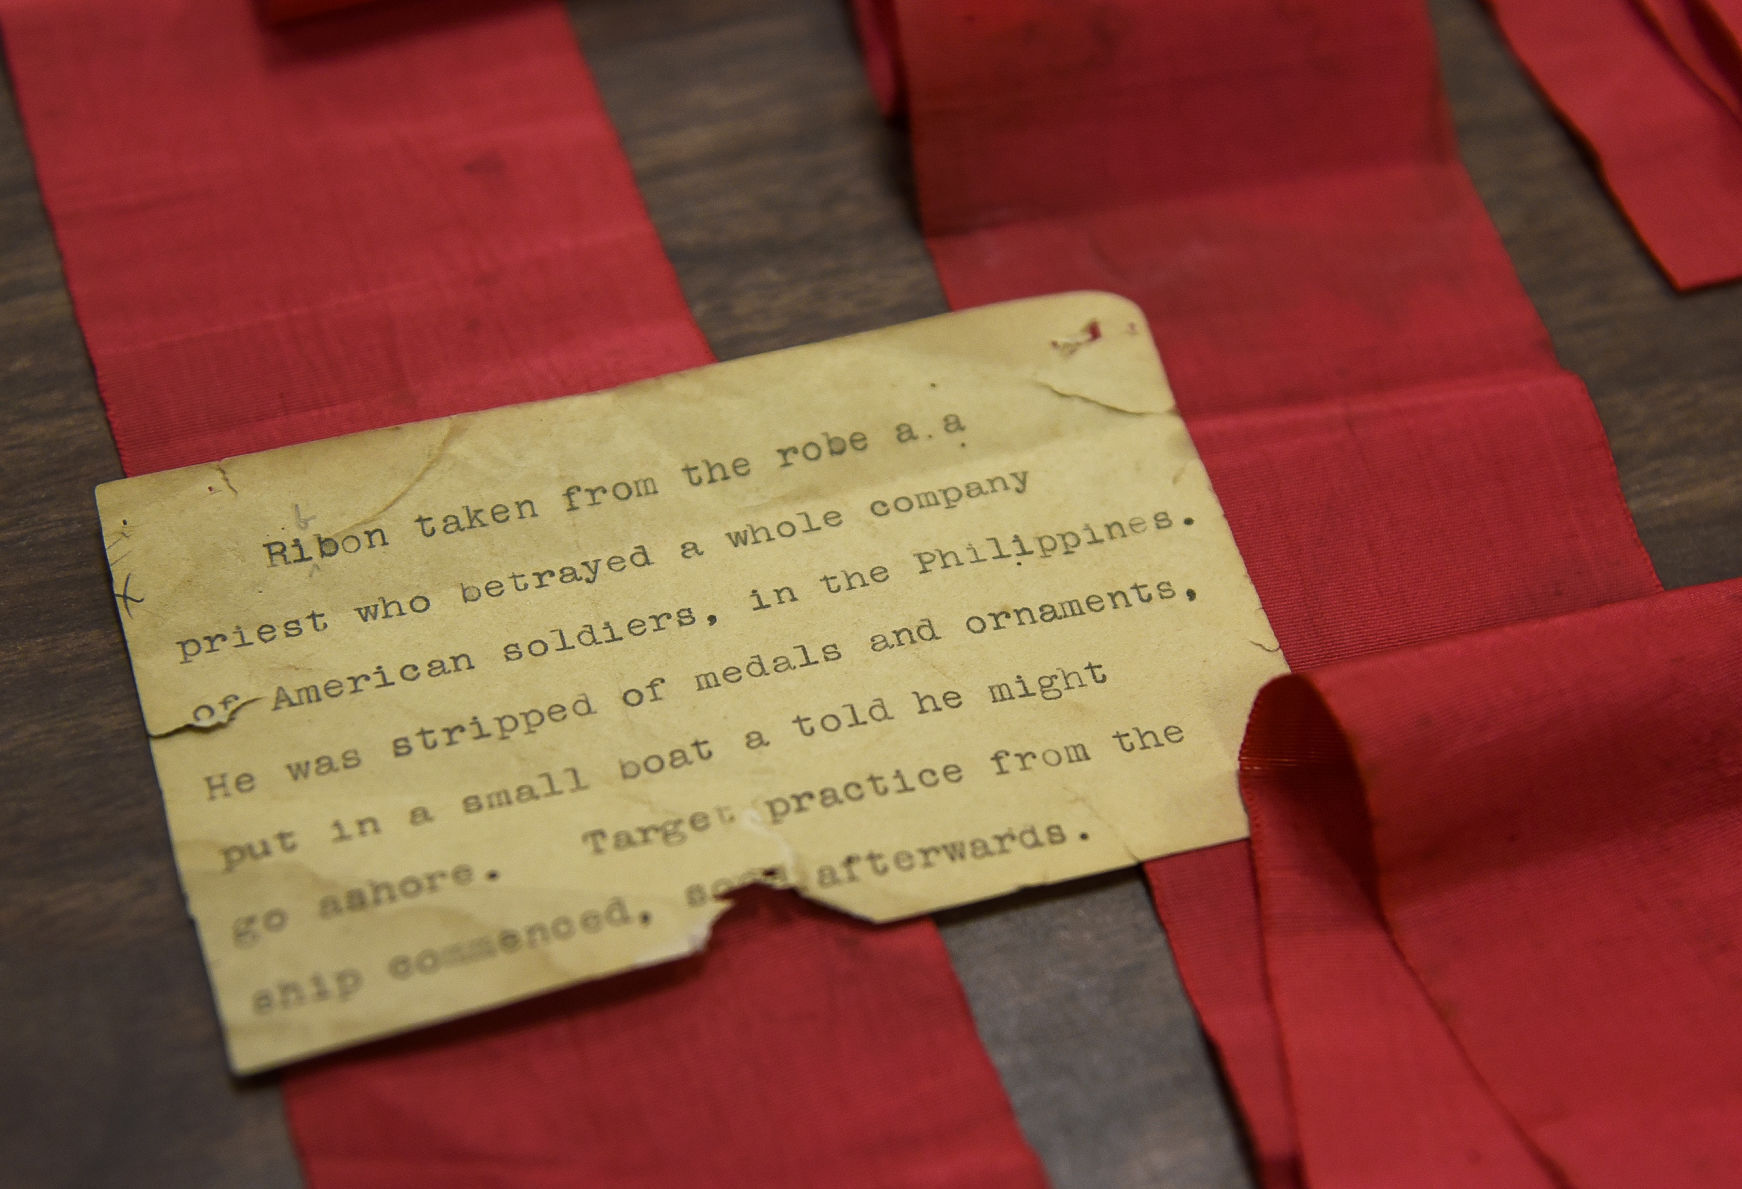 Ribon taken from the robe a.a
priest who betrayed a whole company
of American soldiers, in the Philippines.
He was stripped of medals and ornaments,
put in a small boat a told he might
go aahore. Target practice from the
ship commenced, soon afterwards.